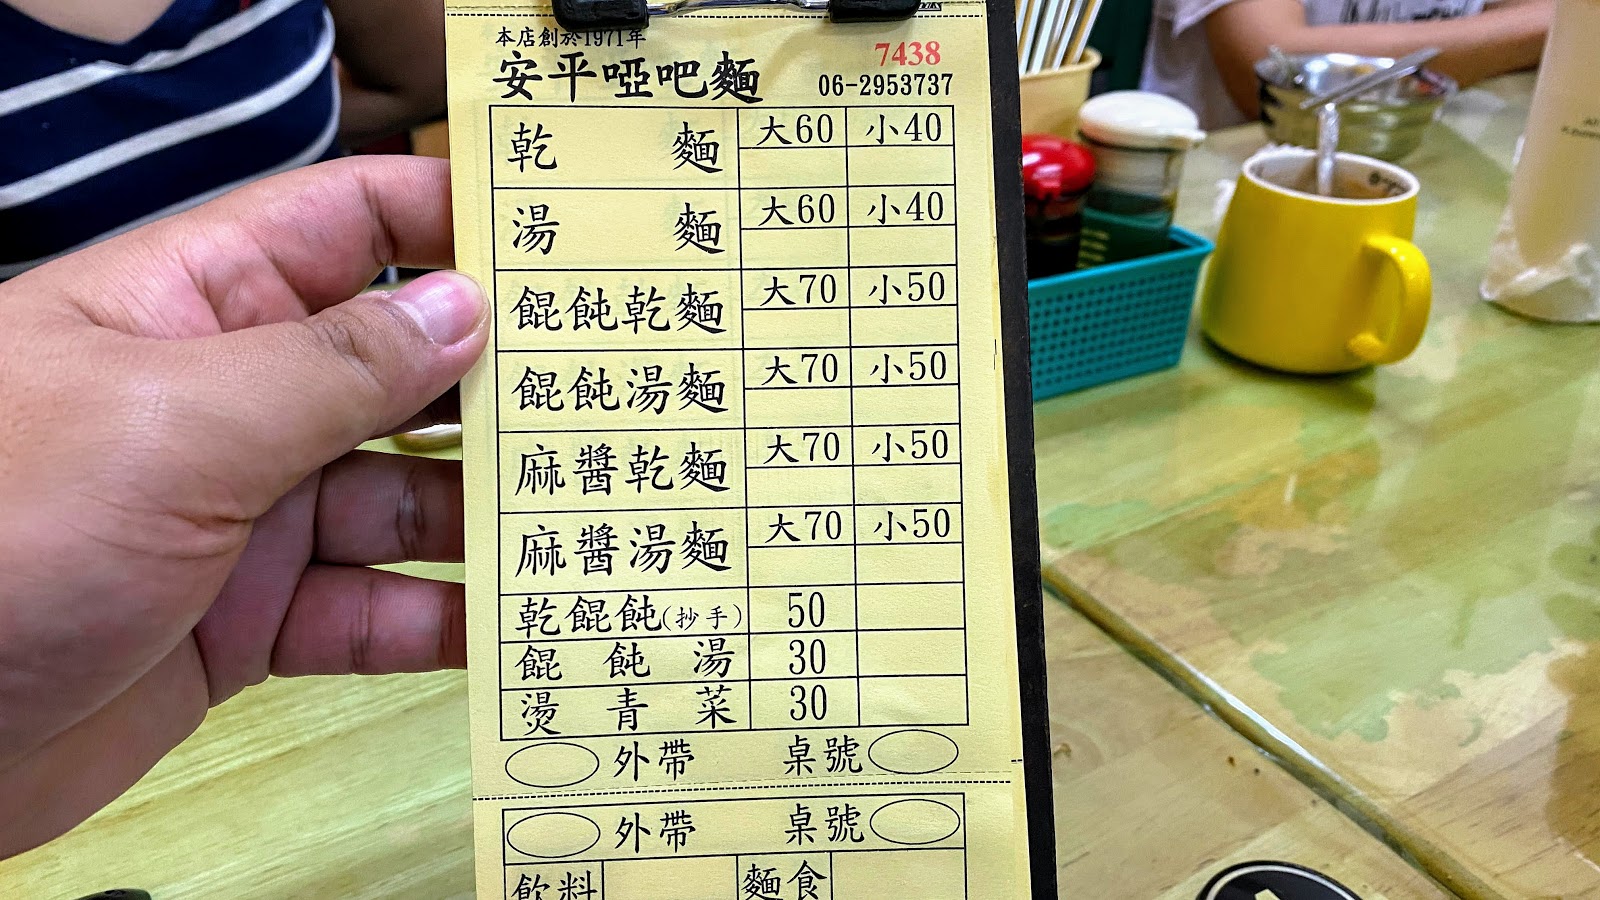 本店創於1971年
安平啞吧麵
7438
06-2953737
乾麵 大60 小40
湯麵 大60 小40
餛飩乾麵 大70 小50
餛飩湯麵 大70 小50
麻醬乾麵 大70 小50
麻醬湯麵 大70 小50
乾餛飩(抄手) 50
餛飩湯 30
燙青菜 30
外帶 桌號
外帶 桌號
飲料 麵食